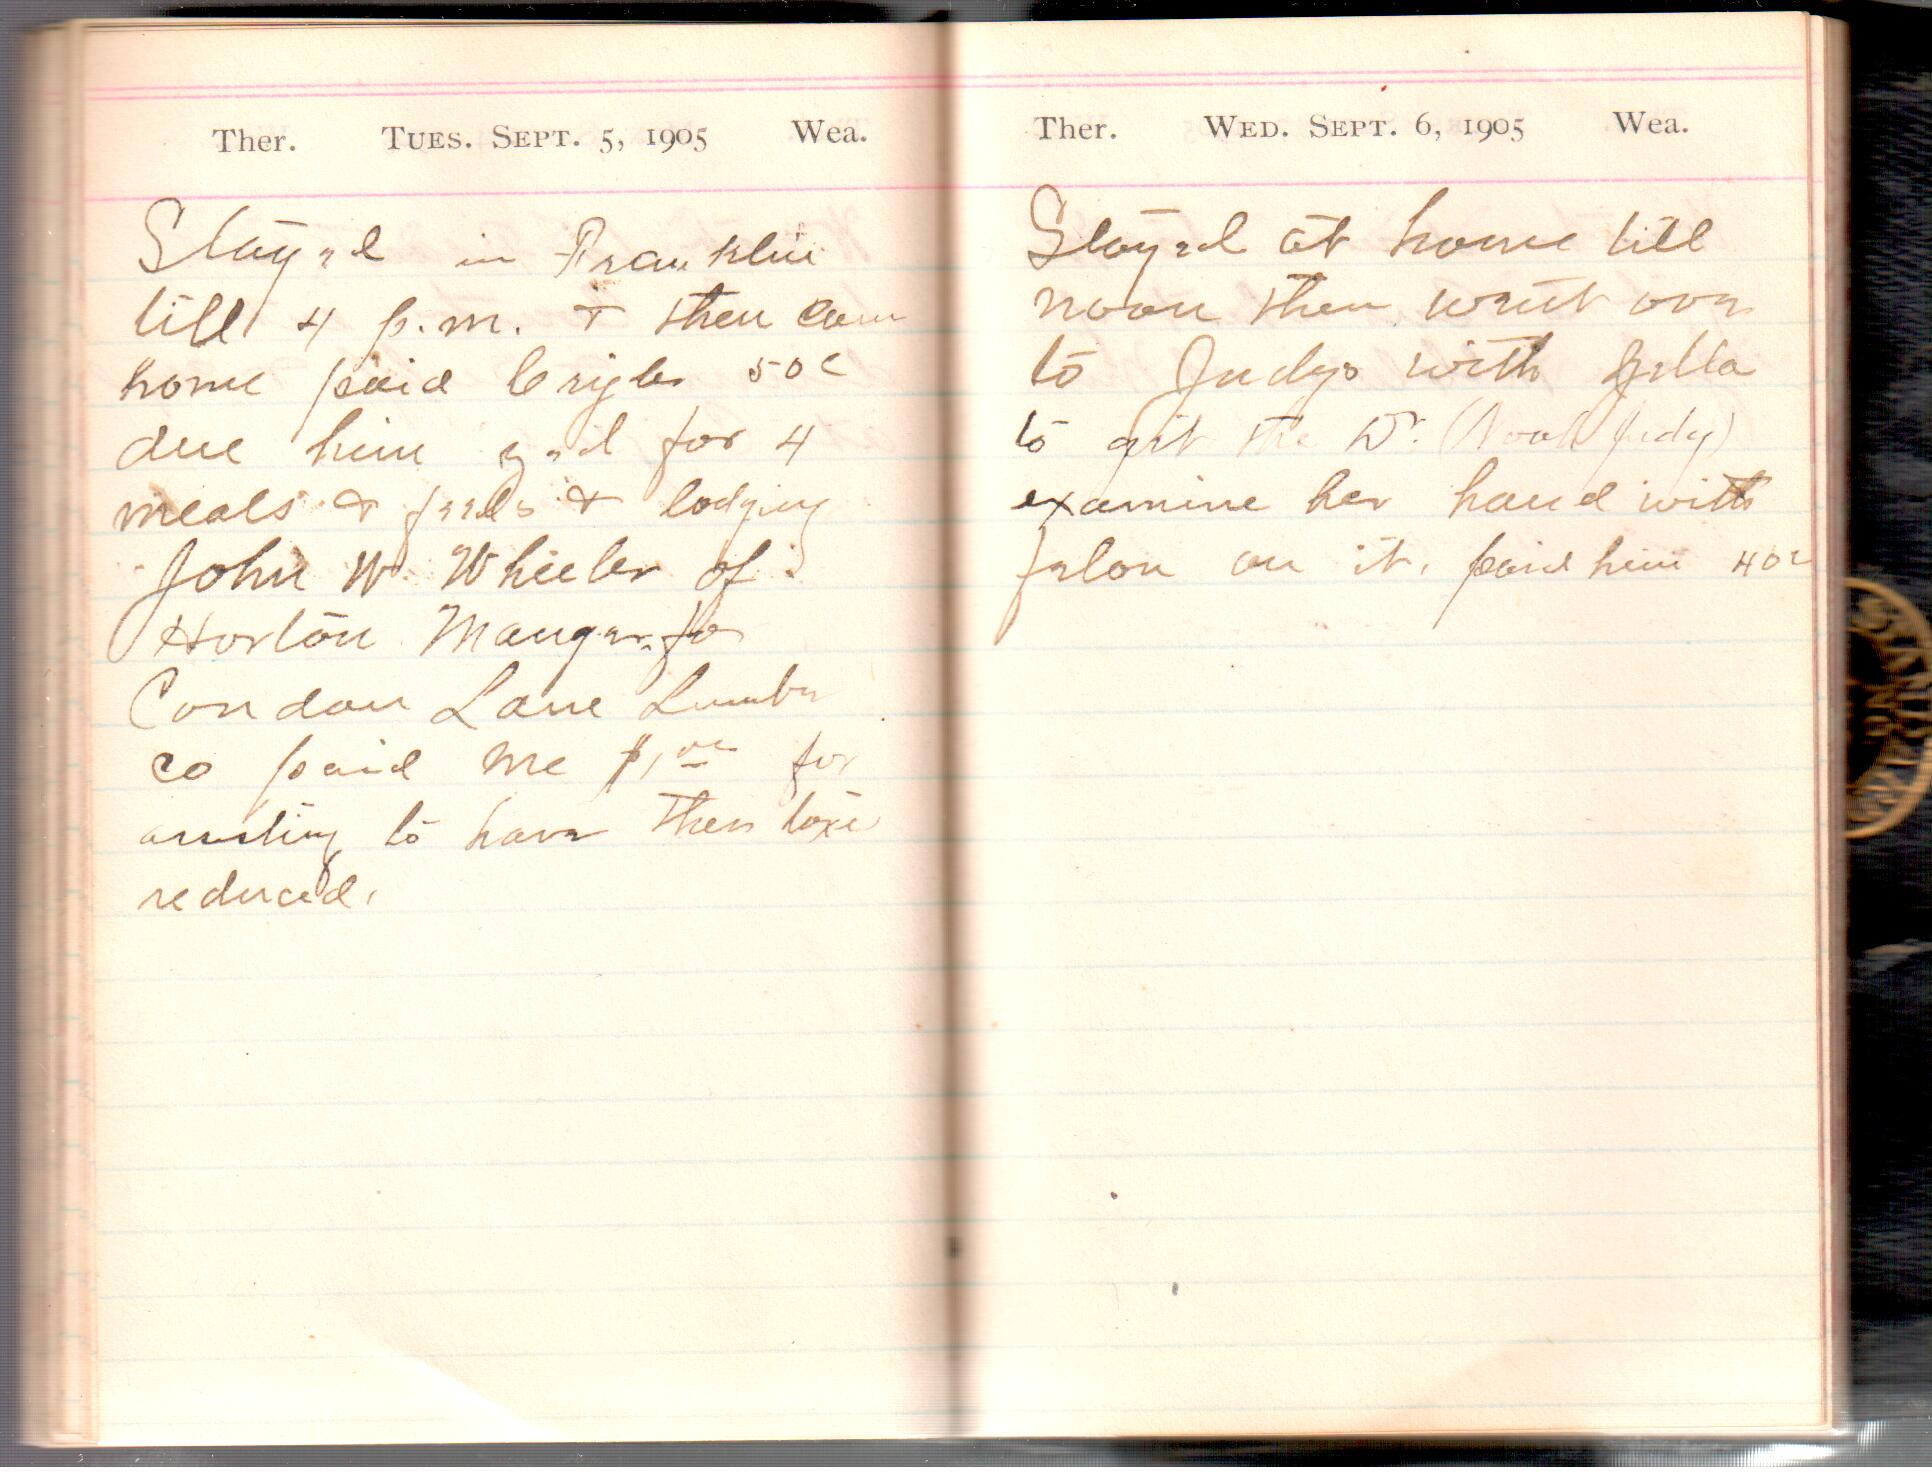 Ther. TUES. SEPT. 5, 1905 Wea.
Stayed in Franklin
till 4 p.m. & then came
home paid 50c
due him for 4
meals & feeds & lodging
John W. Wheeler of
Horton Manger for
Condon Lane Lumber
co paid me $1.00 for
assisting to have then taxes
reduced.
Ther. WED. SEPT. 6, 1905 Wea.
Stayed at home till
noon then went over
to Judys with Zella
to get the Dr. (Noah Judy)
examine her hand with
felon on it. paid him 40c